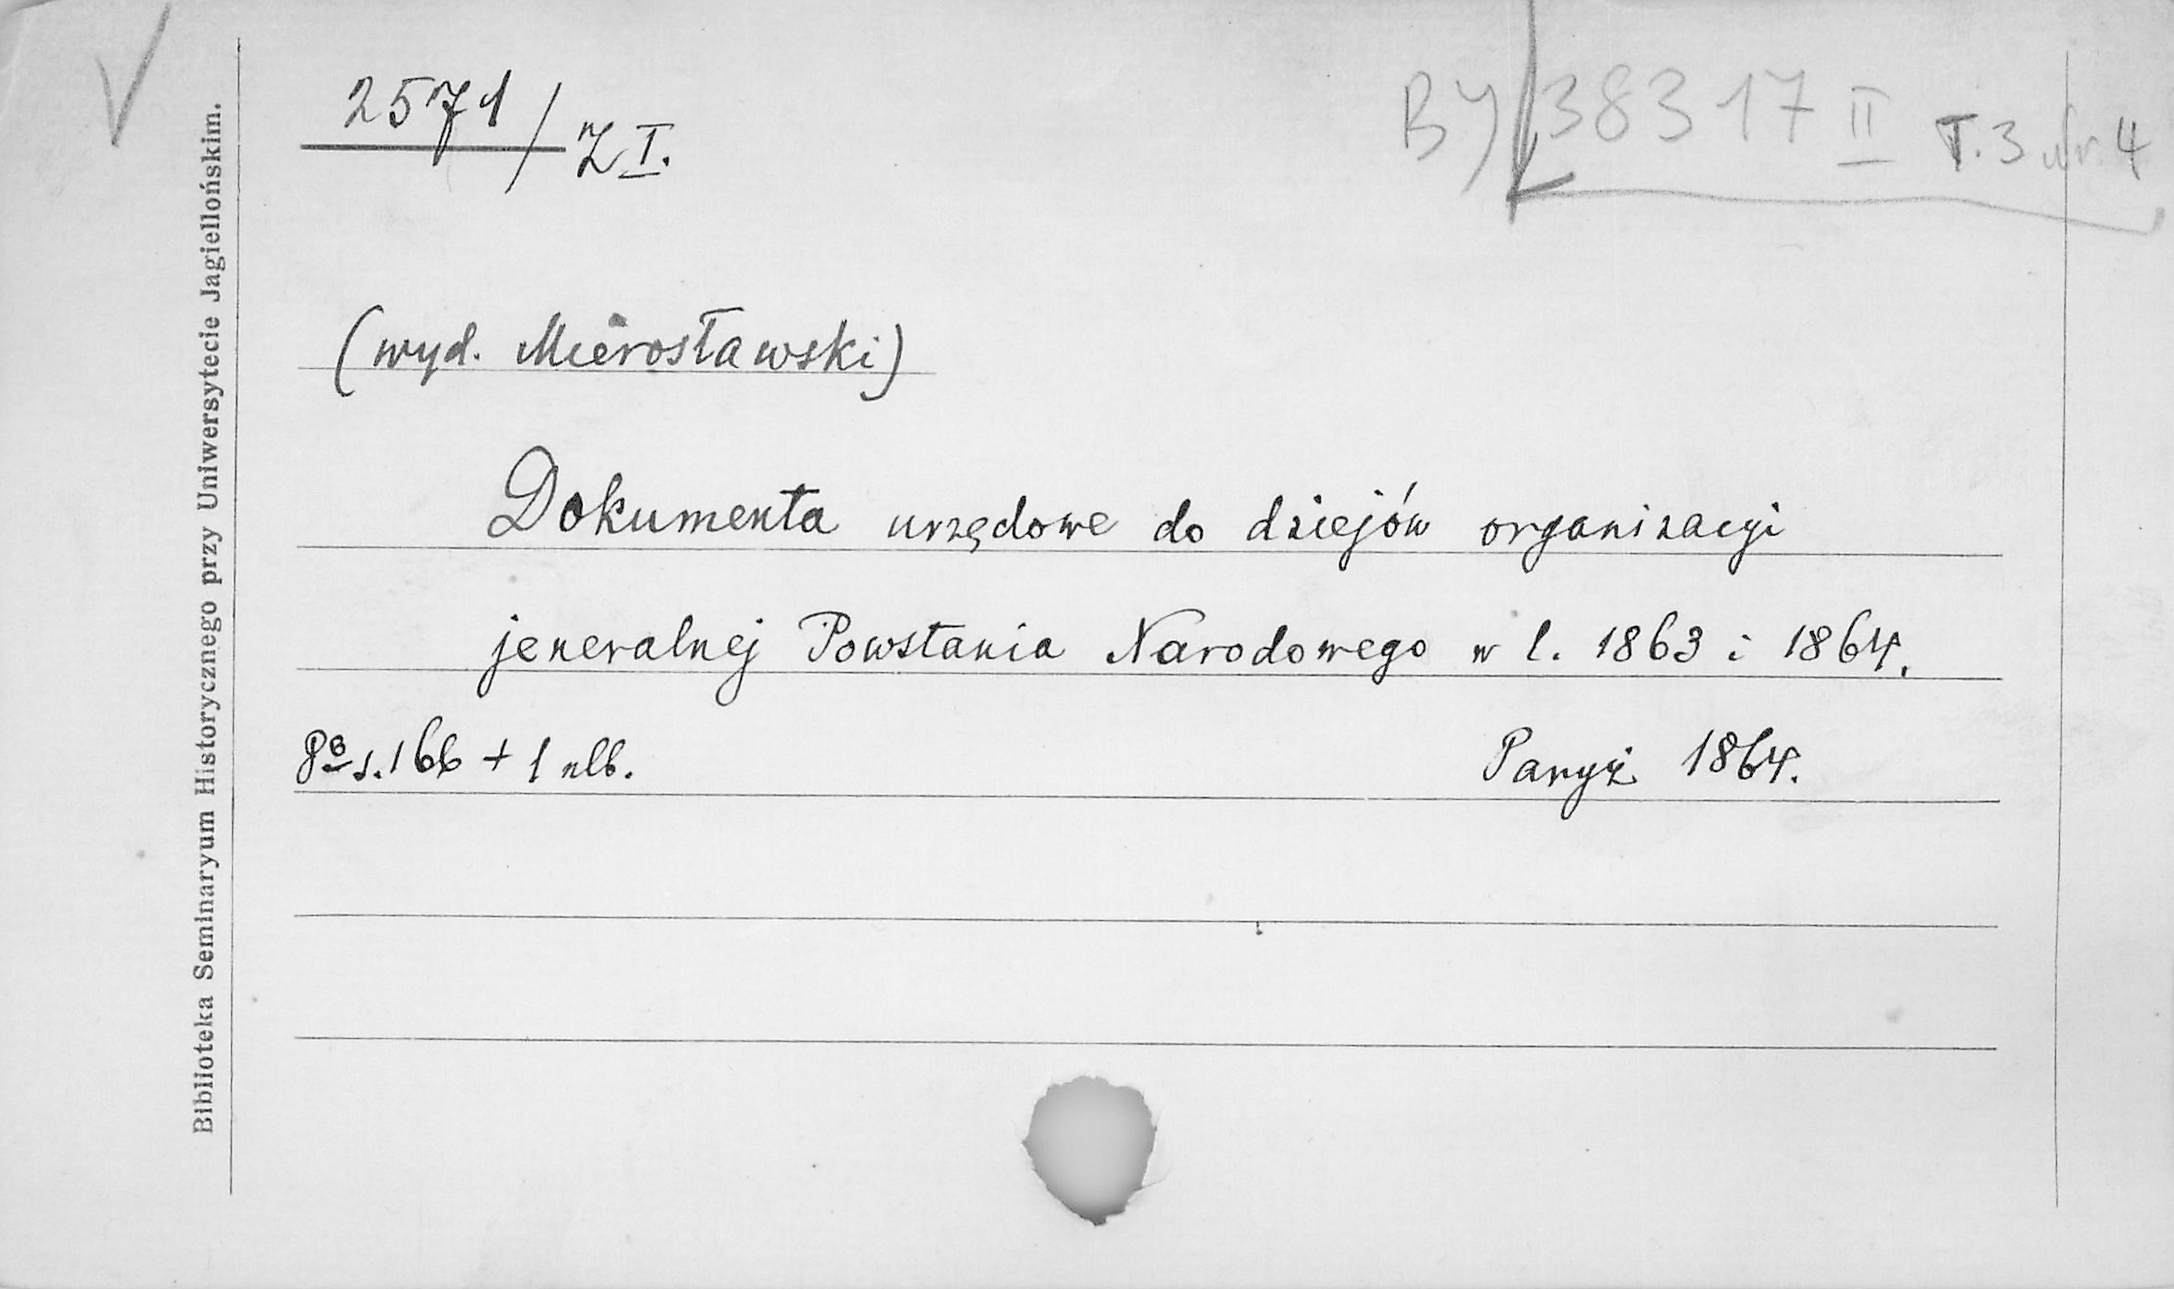 2571 / Z I.
BJ 38317 II T. 3 nr. 4
(wyd. Mierosławski)
Dokumenta urzędowe do dziejów organizacyi
jeneralnej Powstania Narodowego w l. 1863 i 1864.
8° s. 166 + 1 nlb. Paryż 1864.
Biblioteka Seminaryum Historycznego przy Uniwersytecie Jagiellońskim.